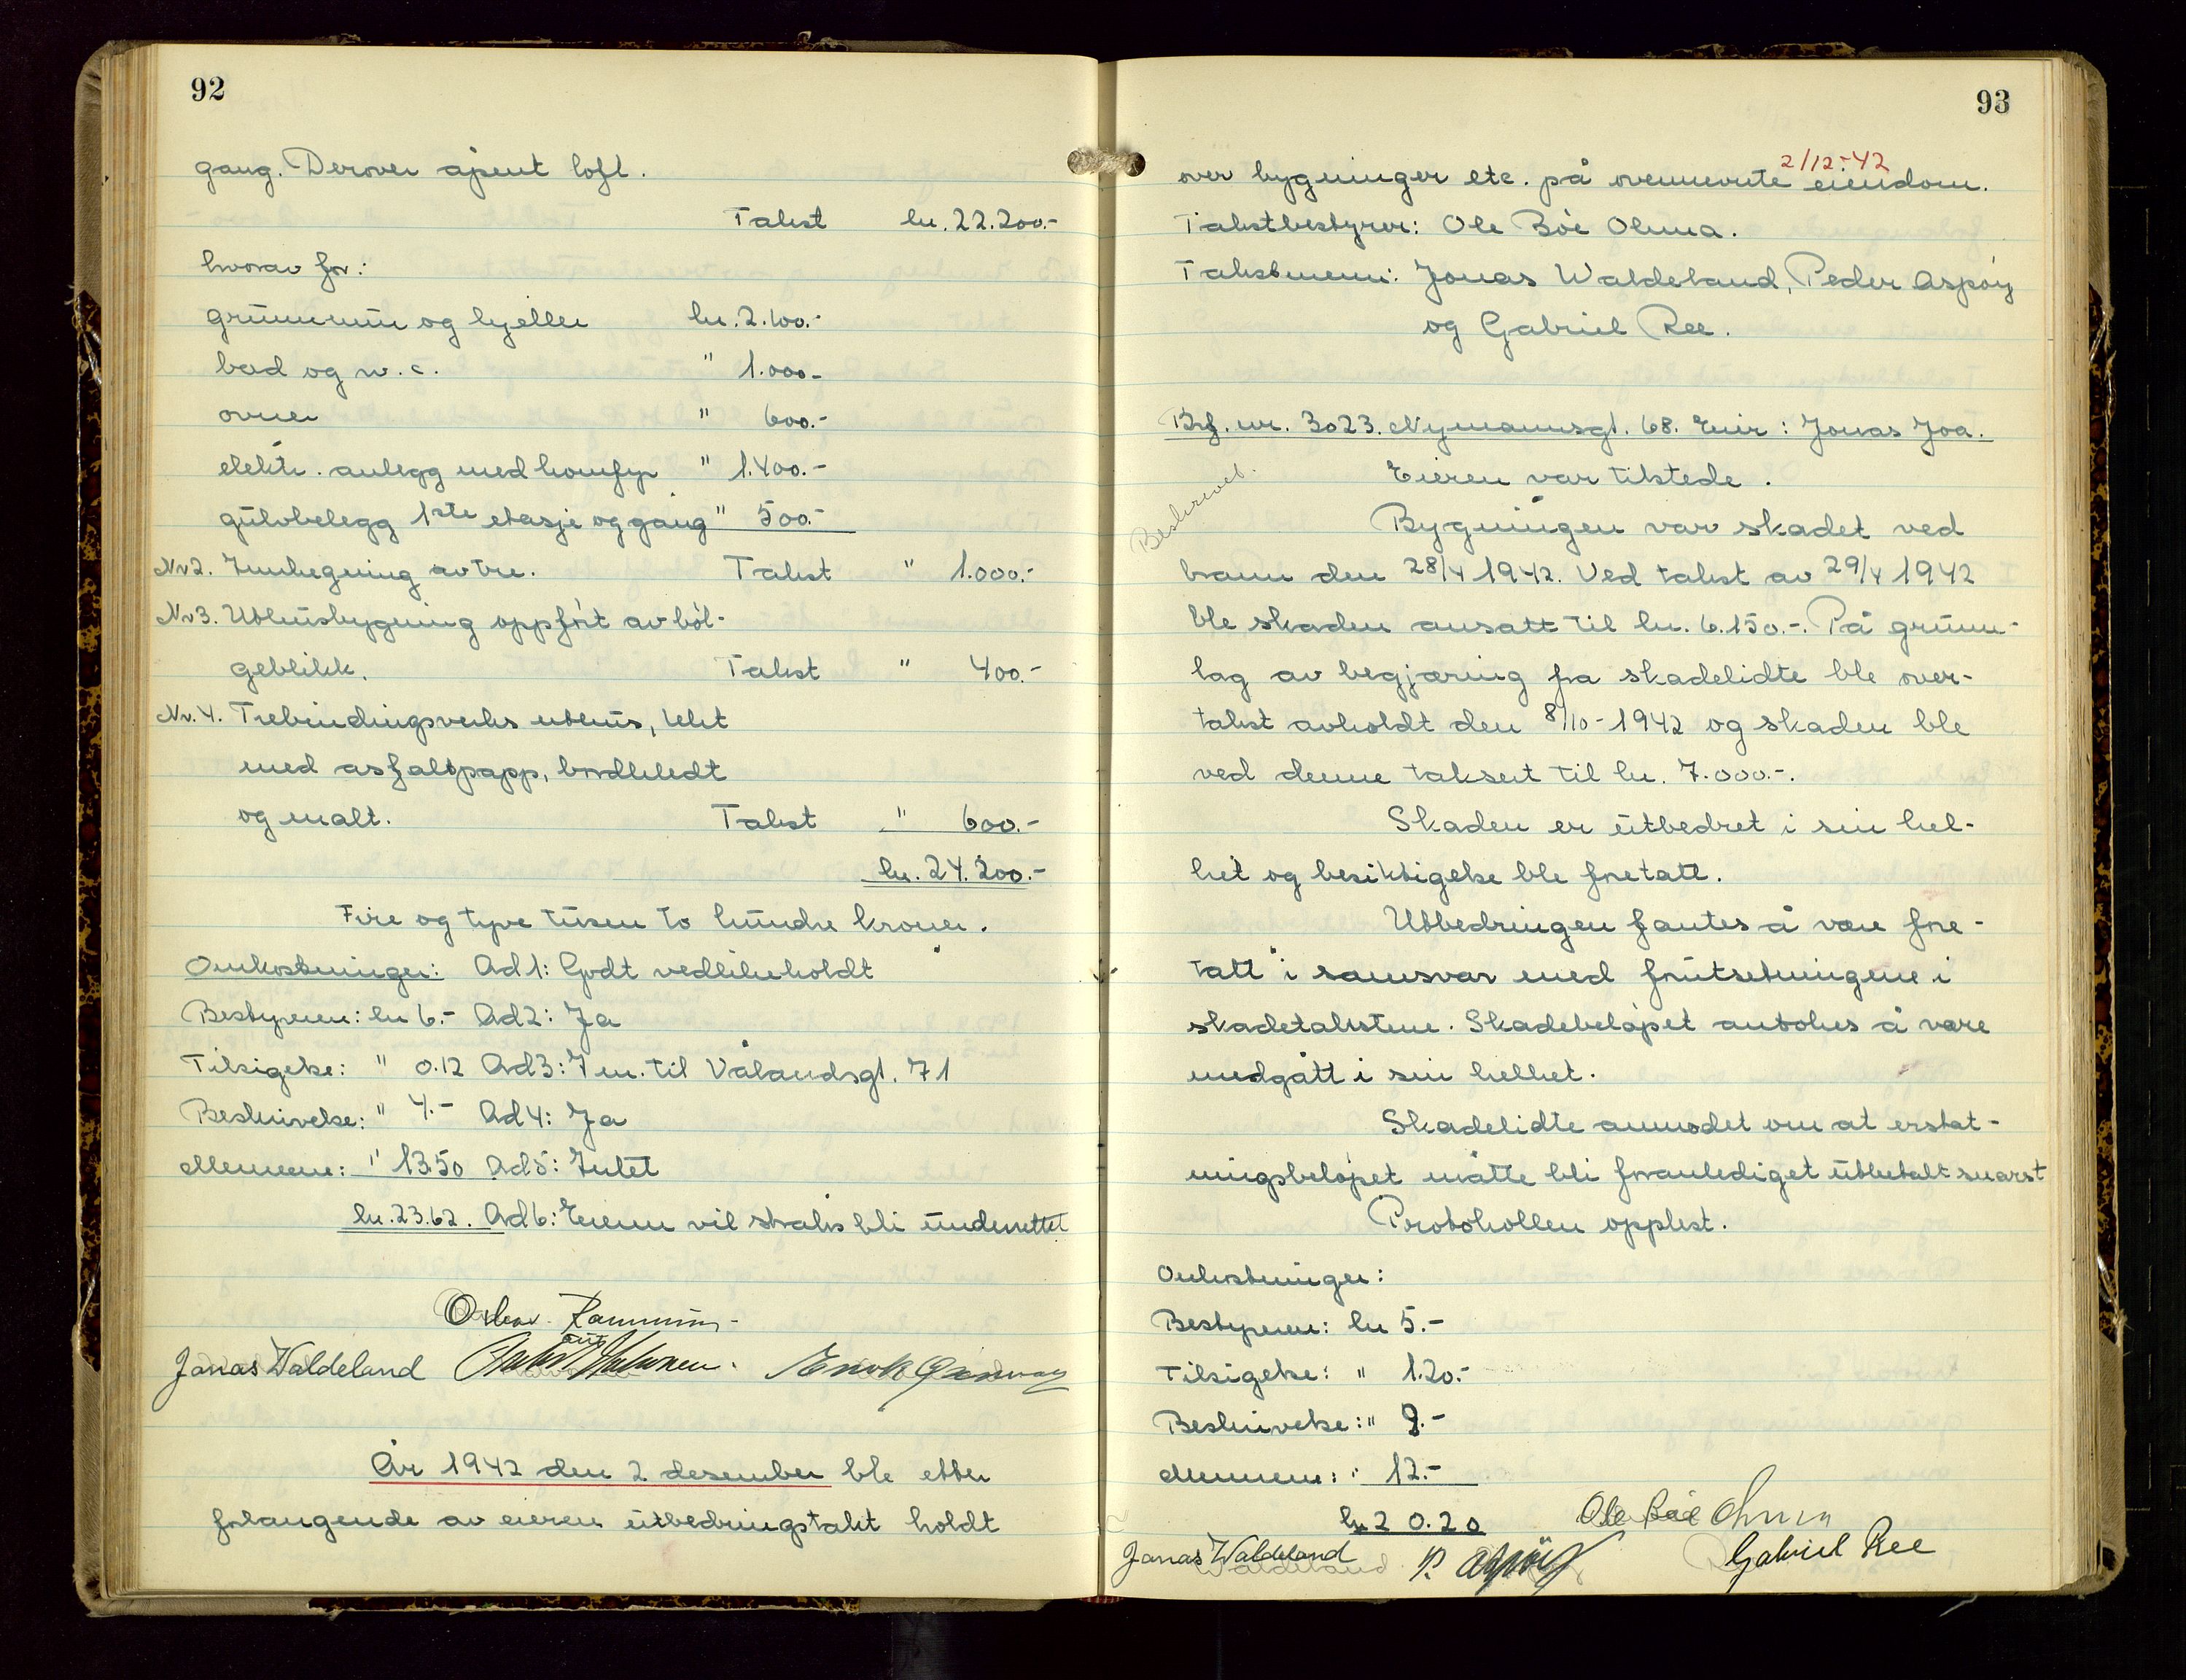 92
gang. Derover åpent loft.
Takst kr. 22.200.-
hvorav for:
grunnmur og kjeller kr. 2.100.-
bad og w.c. " 1.000.-
ovner " 600.-
elektr. anlegg med komfyr " 1.400.-
gulvbelegg 1ste etasje og gang " 500.-
Nr 2. Innhegning av tre. Takst " 1.000.-
Nr 3. Uthusbygning oppført av bøl-
geblikk. Takst " 400.-
Nr. 4. Trebindingsverks uthus, tekt
med asfaltpapp, bordkledt
og malt. Takst " 600.-
kr. 24.200.-
Fire og tyve tusen to hundre kroner.
Omkostninger: Ad 1: Godt vedlikeholdt
Bestyreren: kr 6.- Ad 2: Ja
Tilsigelse: " 0.12 Ad 3: 7 m. til Vålandsgt. 71
Beskrivelse: " 4.- Ad 4: Ja
Mennene: " 13.50 Ad 5: Intet
kr. 23.62. Ad 6: Eieren vil straks bli underrettet
Jonas Waldeland
År 1942 den 2 desember ble etter
forlangende av eieren utbedringstakst holdt
93
2/12-42
over bygninger etc. på ovennevnte eiendom.
Takstbestyrer: Ole Bøe Olsen.
Takstmenn: Jonas Waldeland, Peder Aspøy
og Gabriel Ree.
Brf. nr. 3023. Nymannsgt. 68. Eier: Jonas Joa.
Beskrevet.
Eieren var tilstede.
Bygningen var skadet ved
brann den 28/4 1942. Ved takst av 29/4 1942
ble skaden ansatt til kr. 6.150.-. På grunn-
lag av begjæring fra skadelidte ble over-
takst avholdt den 8/10-1942 og skaden ble
ved denne taksert til kr. 7.000.-.
Skaden er utbedret i sin hel-
het og besiktigelse ble foretatt.
Utbedringen fantes å være fore-
tatt i samsvar med forutsetningene i
skadetakstene. Skadebeløpet antokes å være
medgått i sin helhet.
Skadelidte anmodet om at erstat-
ningsbeløpet måtte bli foranlediget utbetalt snarst
Protokollen opplest.
Omkostninger:
Bestyreren: kr 5.-
Tilsigelse: " 1.20.-
Beskrivelse: " 2.-
Mennene: " 12.-
kr 20.20
Jonas Waldeland P. Aspøy Gabriel Ree